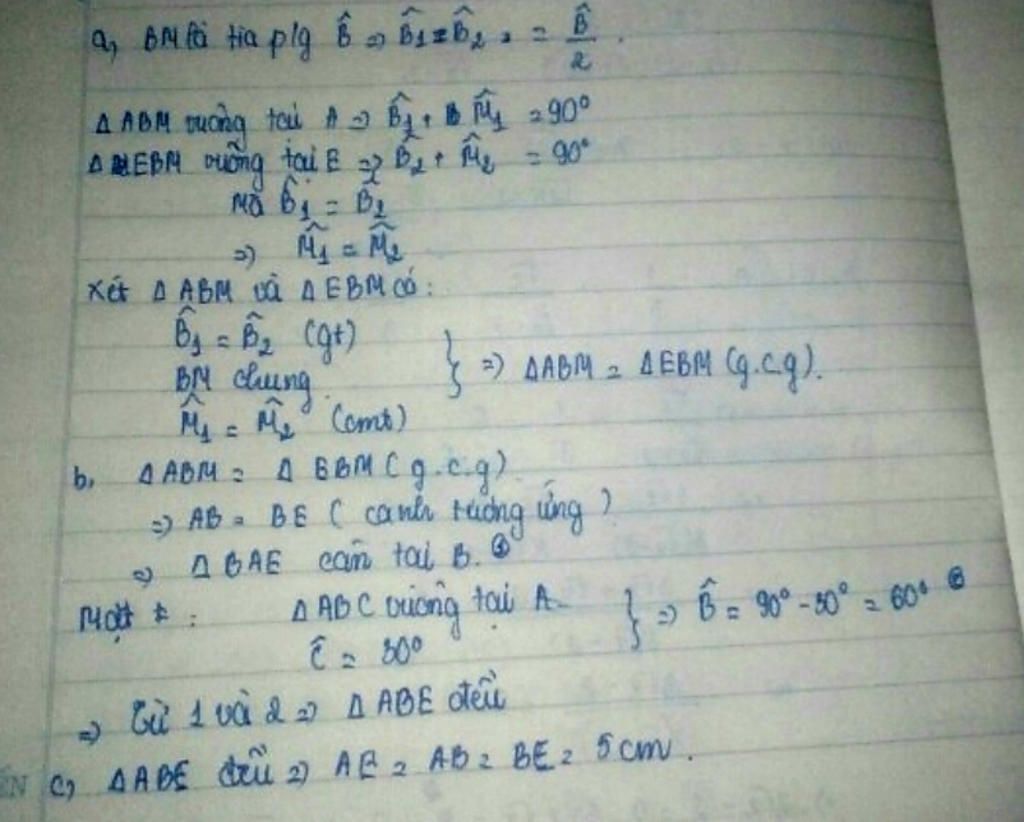 a, BM là tia p/g B̂ => B̂1 = B̂2 = = B̂/2.
Δ ABM vuông tại A => B̂1 + M̂1 = 90°
Δ EBM vuông tại E => B̂2 + M̂2 = 90°
Mà B̂1 = B̂2
=> M̂1 = M̂2
Xét Δ ABM và Δ EBM có:
B̂1 = B̂2 (gt)
BM chung } => ΔABM = ΔEBM (g.c.g).
M̂1 = M̂2 (cmt)
b, ΔABM = Δ EBM (g.c.g)
=> AB = BE (cạnh tương ứng)
=> Δ BAE cân tại B. ①
Mặt ≠ : Δ ABC vuông tại A } => B̂ = 90° - 30° = 60° ②
Ĉ = 30°
=> Từ 1 và 2 => Δ ABE đều
c, ΔABE đều => AE = AB = BE = 5 cm.